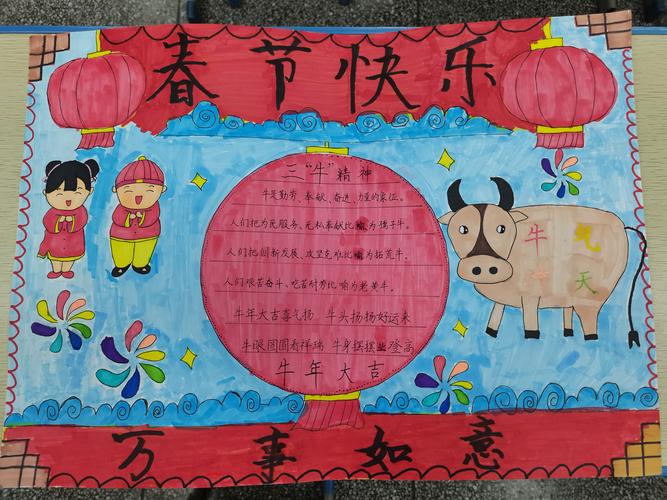 春节快乐
三“牛”精神
牛是勤劳、奉献、奋进、力量的象征。
人们把为民服务、无私奉献比喻为孺子牛。
人们把创新发展、攻坚克难比喻为拓荒牛。
人们把艰苦奋斗、吃苦耐劳比喻为老黄牛。
牛年大吉喜气扬 牛头扬扬好运来
牛眼圆圆看祥瑞 牛身摆摆业登高
牛年大吉
牛气
冲天
万事如意